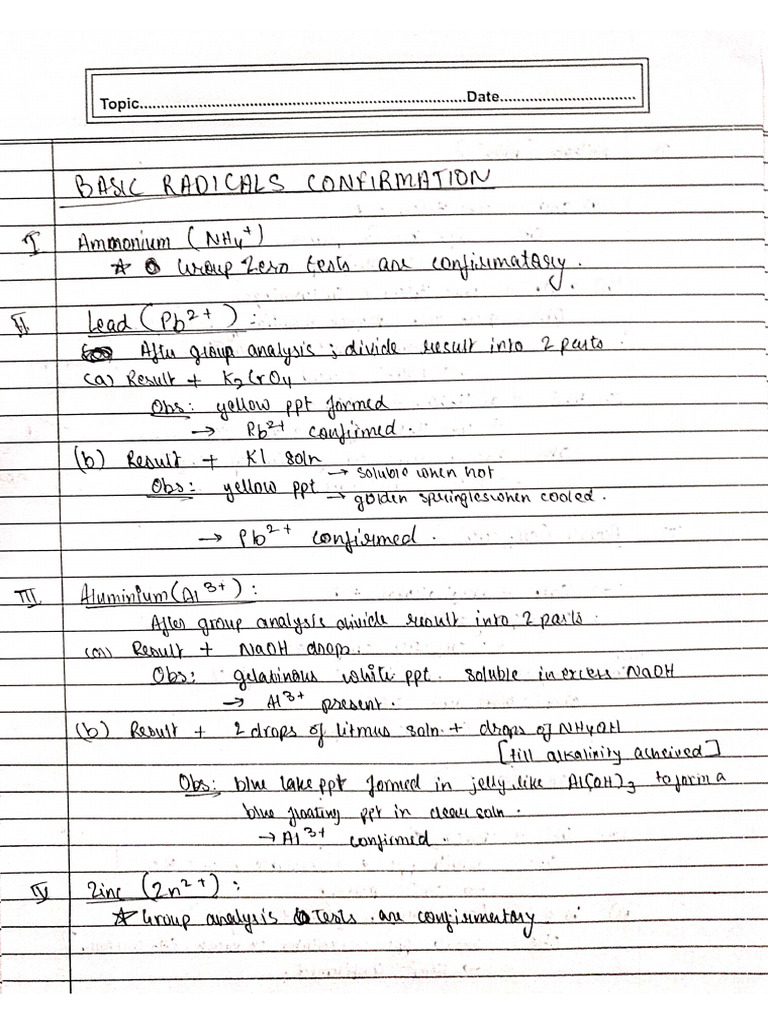 Topic.................................Date.................................
BASIC RADICALS CONFIRMATION
I Ammonium (NH4+)
* Group Zero tests are confirmatory.
II Lead (Pb2+) :
After group analysis ; divide result into 2 parts
(a) Result + K2CrO4.
Obs: yellow ppt formed
→ Pb2+ confirmed.
(b) Result + KI soln
Obs: yellow ppt → soluble when hot
→ golden springles when cooled.
→ Pb2+ confirmed.
III Aluminium (Al3+) :
After group analysis divide result into 2 parts.
(a) Result + NaOH drops.
Obs: gelatinous white ppt. soluble in excess NaOH
→ Al3+ present.
(b) Result + 2 drops of litmus soln + drops of NH4OH
[till alkalinity acheived]
Obs: blue lake ppt formed in jelly like Al(OH)3 to form a
blue floating ppt in clear soln.
→ Al3+ confirmed.
IV Zinc (Zn2+) :
* Group analysis tests are confirmetory